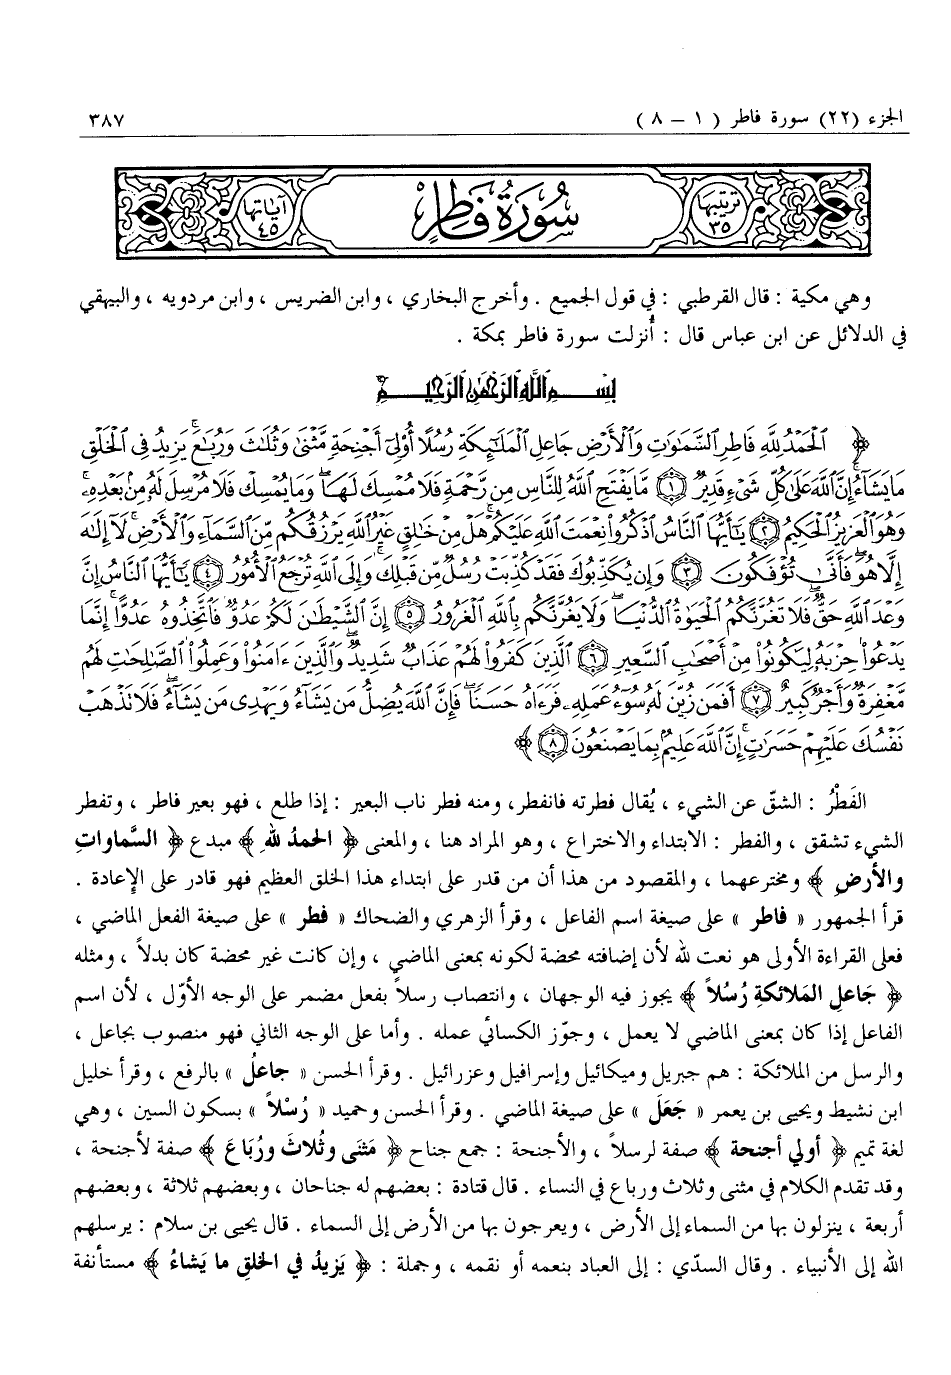 الجزء (٢٢) سورة فاطر ( ١ - ٨ ) ٣٨٧
ترتيبها ٣٥ سُورَةُ فَاطِرٍ آياتها ٤٥
وهي مكية : قال القرطبي : في قول الجميع . وأخرج البخاري ، وابن الضريس ، وابن مردويه ، والبيهقي
في الدلائل عن ابن عباس قال : أُنزلت سورة فاطر بمكة .
بِسْمِ اللَّهِ الرَّحْمَٰنِ الرَّحِيمِ
﴿ الْحَمْدُ لِلَّهِ فَاطِرِ السَّمَٰوَٰتِ وَالْأَرْضِ جَاعِلِ الْمَلَٰٓئِكَةِ رُسُلًا أُو۟لِىٓ أَجْنِحَةٍ مَّثْنَىٰ وَثُلَٰثَ وَرُبَٰعَ ۚ يَزِيدُ فِى الْخَلْقِ
مَا يَشَآءُ ۚ إِنَّ اللَّهَ عَلَىٰ كُلِّ شَىْءٍ قَدِيرٌ ١ مَّا يَفْتَحِ اللَّهُ لِلنَّاسِ مِن رَّحْمَةٍ فَلَا مُمْسِكَ لَهَا ۖ وَمَا يُمْسِكْ فَلَا مُرْسِلَ لَهُۥ مِنۢ بَعْدِهِۦ ۚ
وَهُوَ الْعَزِيزُ الْحَكِيمُ ٢ يَٰٓأَيُّهَا النَّاسُ اذْكُرُوا۟ نِعْمَتَ اللَّهِ عَلَيْكُمْ ۚ هَلْ مِنْ خَٰلِقٍ غَيْرُ اللَّهِ يَرْزُقُكُم مِّنَ السَّمَآءِ وَالْأَرْضِ ۚ لَآ إِلَٰهَ
إِلَّا هُوَ ۖ فَأَنَّىٰ تُؤْفَكُونَ ٣ وَإِن يُكَذِّبُوكَ فَقَدْ كُذِّبَتْ رُسُلٌ مِّن قَبْلِكَ ۚ وَإِلَى اللَّهِ تُرْجَعُ الْأُمُورُ ٤ يَٰٓأَيُّهَا النَّاسُ إِنَّ
وَعْدَ اللَّهِ حَقٌّ ۖ فَلَا تَغُرَّنَّكُمُ الْحَيَوٰةُ الدُّنْيَا ۖ وَلَا يَغُرَّنَّكُم بِاللَّهِ الْغَرُورُ ٥ إِنَّ الشَّيْطَٰنَ لَكُمْ عَدُوٌّ فَاتَّخِذُوهُ عَدُوًّا ۚ إِنَّمَا
يَدْعُوا۟ حِزْبَهُۥ لِيَكُونُوا۟ مِنْ أَصْحَٰبِ السَّعِيرِ ٦ الَّذِينَ كَفَرُوا۟ لَهُمْ عَذَابٌ شَدِيدٌ ۖ وَالَّذِينَ ءَامَنُوا۟ وَعَمِلُوا۟ الصَّٰلِحَٰتِ لَهُم
مَّغْفِرَةٌ وَأَجْرٌ كَبِيرٌ ٧ أَفَمَن زُيِّنَ لَهُۥ سُوٓءُ عَمَلِهِۦ فَرَءَاهُ حَسَنًا ۖ فَإِنَّ اللَّهَ يُضِلُّ مَن يَشَآءُ وَيَهْدِى مَن يَشَآءُ ۖ فَلَا تَذْهَبْ
نَفْسُكَ عَلَيْهِمْ حَسَرَٰتٍ ۚ إِنَّ اللَّهَ عَلِيمٌۢ بِمَا يَصْنَعُونَ ٨ ﴾
الفَطْرُ : الشقّ عن الشيء ، يُقال فطرته فانفطر، ومنه فطر ناب البعير : إذا طلع ، فهو بعير فاطر ، وتفطر
الشيء تشقق ، والفطر : الابتداء والاختراع ، وهو المراد هنا ، والمعنى ﴿ الحمدُ للهِ ﴾ مبدع ﴿ السَّماواتِ
والأرضِ ﴾ ومخترعهما ، والمقصود من هذا أن من قدر على ابتداء هذا الخلق العظيم فهو قادر على الإعادة .
قرأ الجمهور « فاطر » على صيغة اسم الفاعل ، وقرأ الزهري والضحاك « فطر » على صيغة الفعل الماضي ،
فعلى القراءة الأولى هو نعت لله لأن إضافته محضة لكونه بمعنى الماضي ، وإن كانت غير محضة كان بدلاً ، ومثله
﴿ جَاعلِ المَلائكةِ رُسُلاً ﴾ يجوز فيه الوجهان ، وانتصاب رسلاً بفعل مضمر على الوجه الأوّل ، لأن اسم
الفاعل إذا كان بمعنى الماضي لا يعمل ، وجوّز الكسائي عمله . وأما على الوجه الثاني فهو منصوب بجاعل ،
والرسل من الملائكة : هم جبريل وميكائيل وإسرافيل وعزرائيل . وقرأ الحسن « جاعلُ » بالرفع ، وقرأ خليل
ابن نشيط ويحيى بن يعمر « جَعَلَ » على صيغة الماضي . وقرأ الحسن وحميد « رُسْلاً » بسكون السين ، وهي
لغة تميم ﴿ أولي أجنحة ﴾ صفة لرسلاً ، والأجنحة : جمع جناح ﴿ مَثنى وثُلاثَ ورُبَاعَ ﴾ صفة لأجنحة ،
وقد تقدم الكلام في مثنى وثلاث ورباع في النساء . قال قتادة : بعضهم له جناحان ، وبعضهم ثلاثة ، وبعضهم
أربعة ، ينزلون بها من السماء إلى الأرض ، ويعرجون بها من الأرض إلى السماء . قال يحيى بن سلام : يرسلهم
الله إلى الأنبياء . وقال السدّي : إلى العباد بنعمه أو نقمه ، وجملة : ﴿ يَزيدُ في الخلقِ ما يَشاءُ ﴾ مستأنفة